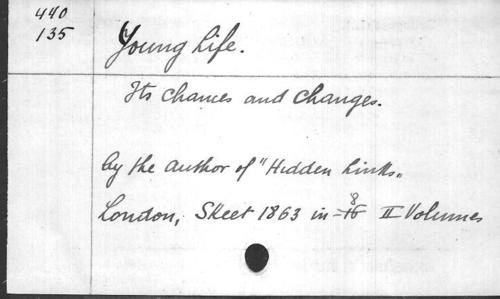 440
135
Young Life.
Its Chances and Changes.
by the author of "Hidden Links„
London, Skeet 1863 in 8 II Volumes